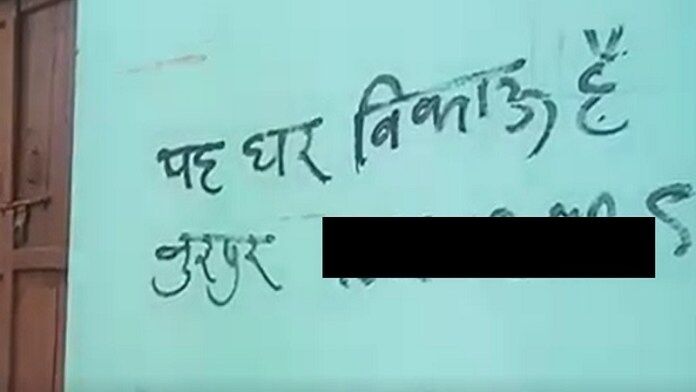 यह घर विकाऊ है
नुरपुर